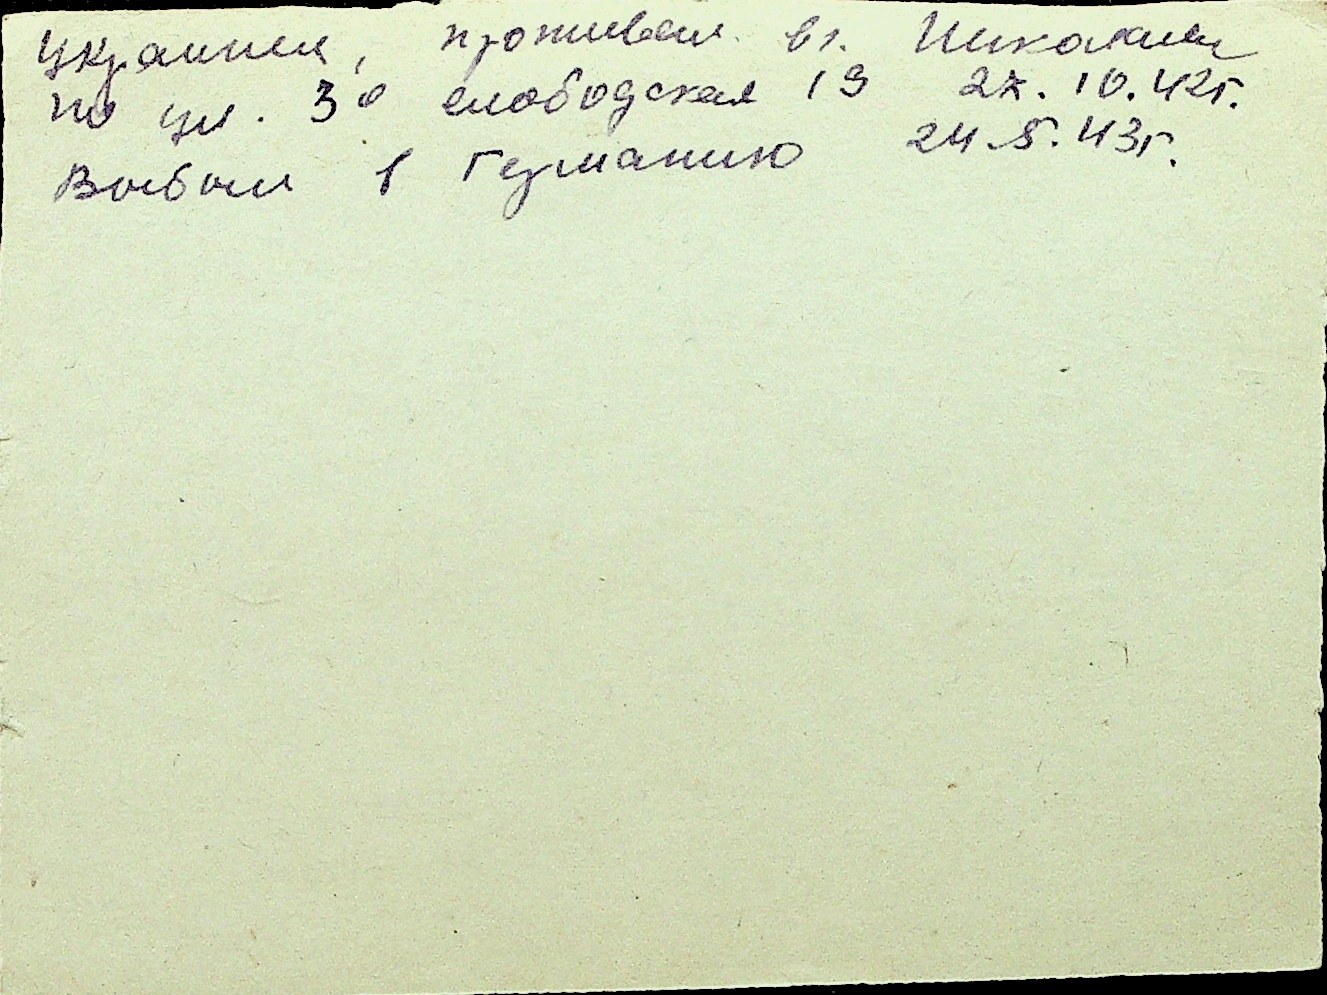 Украинец, проживал в г. Николаев
по ул. 3я слободская 19 27.10.42г.
Выбыл в Германию 24.5.43г.